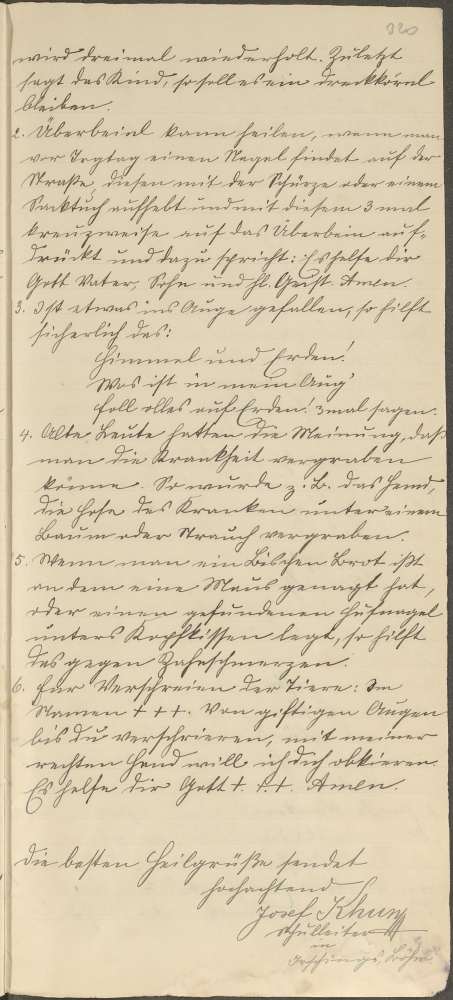 320
wird dreimal wiederholt. Zuletzt
sagt das Kind, so soll es ein Dreckkörnl
bleiben.
2. Überbeinl kann heilen, wenn man
vor Tagtag einen Nagel findet auf der
Straße, diesen mit der Schürze oder einem
Sacktuch aufhebt und mit diesem 3 mal
kreuzweise auf das Überbein auf-
drückt und dazu spricht: Es helfe dir
Gott Vater, Sohn und hl. Geist. Amen.
3. Ist etwas ins Auge gefallen, so hilft
sicherlich das:
Himmel und Erden!
Was ist in mein Aug'
soll alles auf Erden! 3 mal sagen.
4. Alte Leute hatten die Meinung, daß
man die Krankheit vergraben
könne. So wurde z. B. das Hemd,
die Hose des Kranken unter einem
Baum oder Strauch vergraben.
5. Wenn man ein bischen Brot ißt
an dem eine Maus genagt hat,
oder einen gefundenen Hufnagel
unters Kopfkissen legt, so hilft
das gegen Zahnschmerzen.
6. Für Verschreien der Tiere: Im
Namen + + +. Von giftigen Augen
bis du verschrieren, mit meiner
rechten Hand will ich dich abkieren.
Es helfe dir Gott +. +. +. Amen.
Die besten Heilgrüße sendet
hochachtend
Josef Khun
Schulleiter
in
Böhm